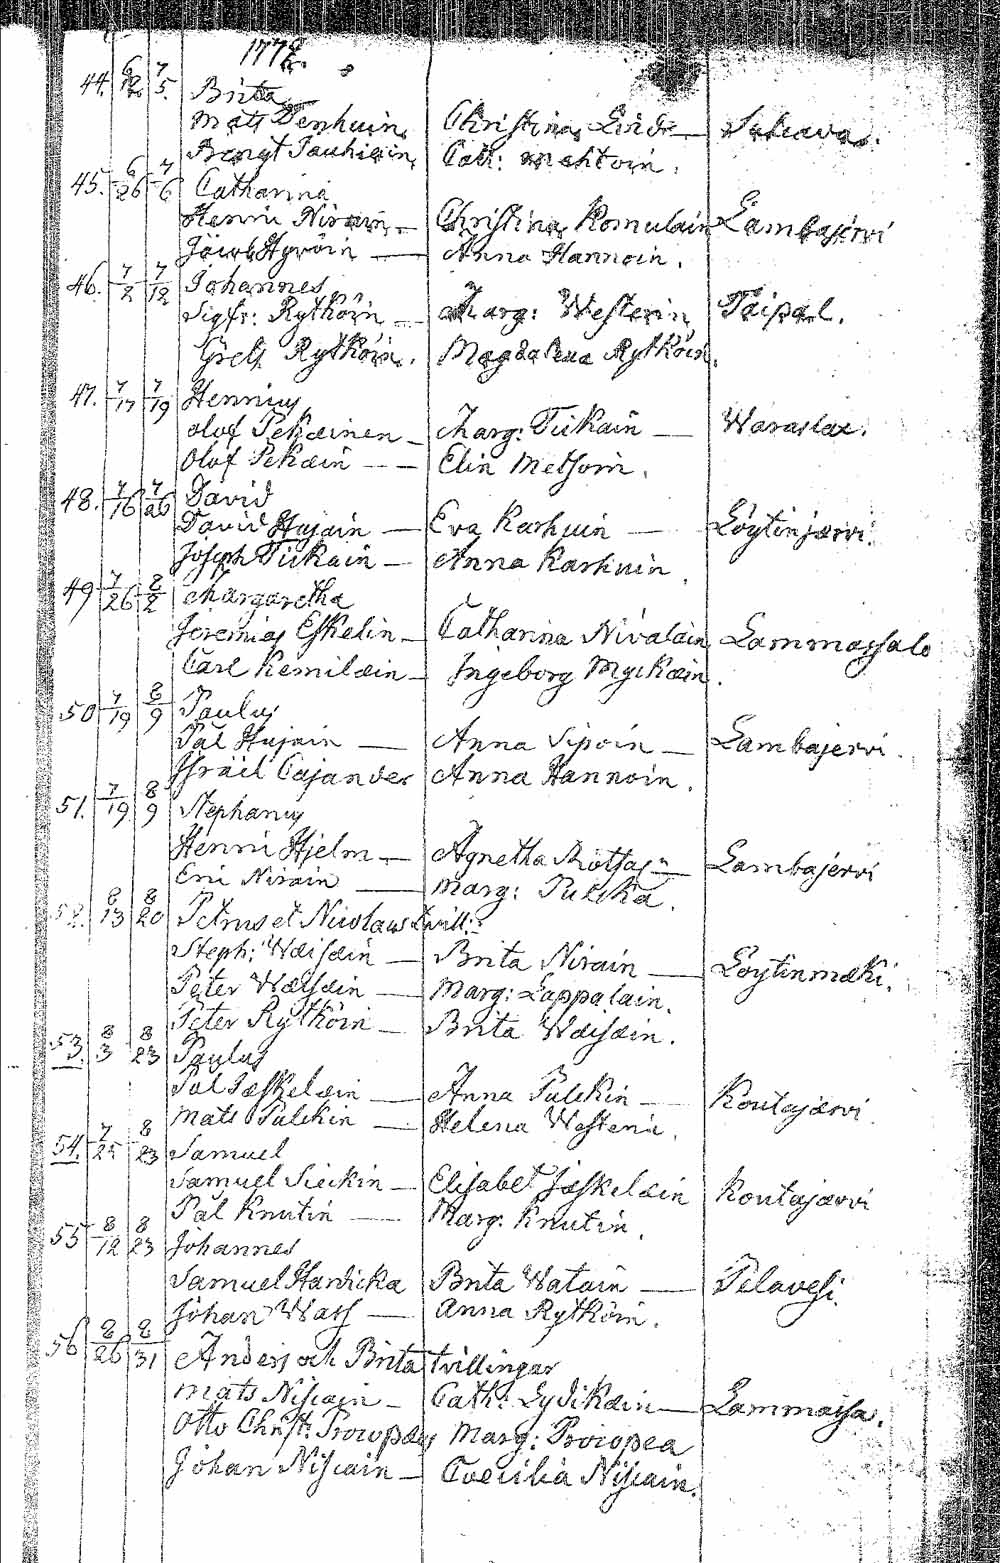 44. 6/12 7/5. Brita
Mats Tenhuin, Christina Lind — Sulcava.
Bengt Tauhiain, Cath: Mahtoin.
45. 6/26 7/6 Catharina
Henric Nirain — Christina Romulain Lambajervi
Jacob Hyvöin — Anna Hannoin.
46. 7/2 7/12 Johannes
Sigfr: Rytköin — Marg: Westerin Taipal.
Gret. Rytköin. Magdalena Rytköin.
47. 7/17 7/19 Henricus
Olof Pekæinen — Marg: Tiikain — Waraslax.
Olof Pekæin — — Elin Metsoin.
48. 7/16 7/26 David
David Hujain — Eva Karhuin — Löytinjærvi.
Joseph Tiikain — Anna Karhuin.
49 7/26 8/2 Margaretha
Jeremias Eskelin — Catharina Nivalain Lammassalo
Carl Kemilæin — Ingeborg Myckæin.
50 7/19 8/9 Paulus
Pål Hujain — Anna Sipoin — Lambajervi.
Israel Cajander Anna Hannoin.
51. 7/19 8/9 Stephanus
Henric Hjelm — Agnetha — Lambajervi
Eric Nirain — Marg: Pulcka.
52. 8/13 8/20 Petrus et Nicolaus tvill:
Steph: Wæisæin — Brita Nirain — Löytinmæki.
Peter Wæisæin — Marg: Lappalain.
Peter Rytköin — Brita Wæisæin.
53. 8/3 8/23 Paulus
Pål Jæskelæin — Anna Pulckin — Koutajærvi
Mats Pulckin — Helena Westerin.
54. 7/25 8/23 Samuel
Samuel Sieckin — Elisabet Jæskelæin Koutajærvi
Pål Knutin — Marg: Knutin.
55 8/12 8/23 Johannes
Samuel Hanicka Brita Watain — Pelavesi.
Johan Wass — Anna Rytköin.
56 8/26 8/31 Anders och Brita tvillingar
Mats Niscain — Cath: Lydikæin — Lammassa.
Otto Christ: Procopæus Marg: Procopea
Johan Niscain — Cæcilia Niscain.